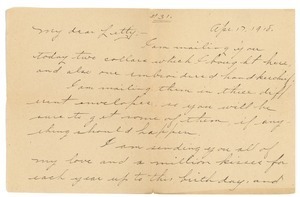 #31.
Apr. 17, 1918.
My dear Letty,-
I am mailing you
today two collars which I bought here,
and also one embroidered handkerchief.
I am mailing them in three dif-
ferent envelopes, so you will be
sure to get some of them if any-
thing should happen.
I am sending you all of
my love and a million kisses for
each year up to this birthday, and